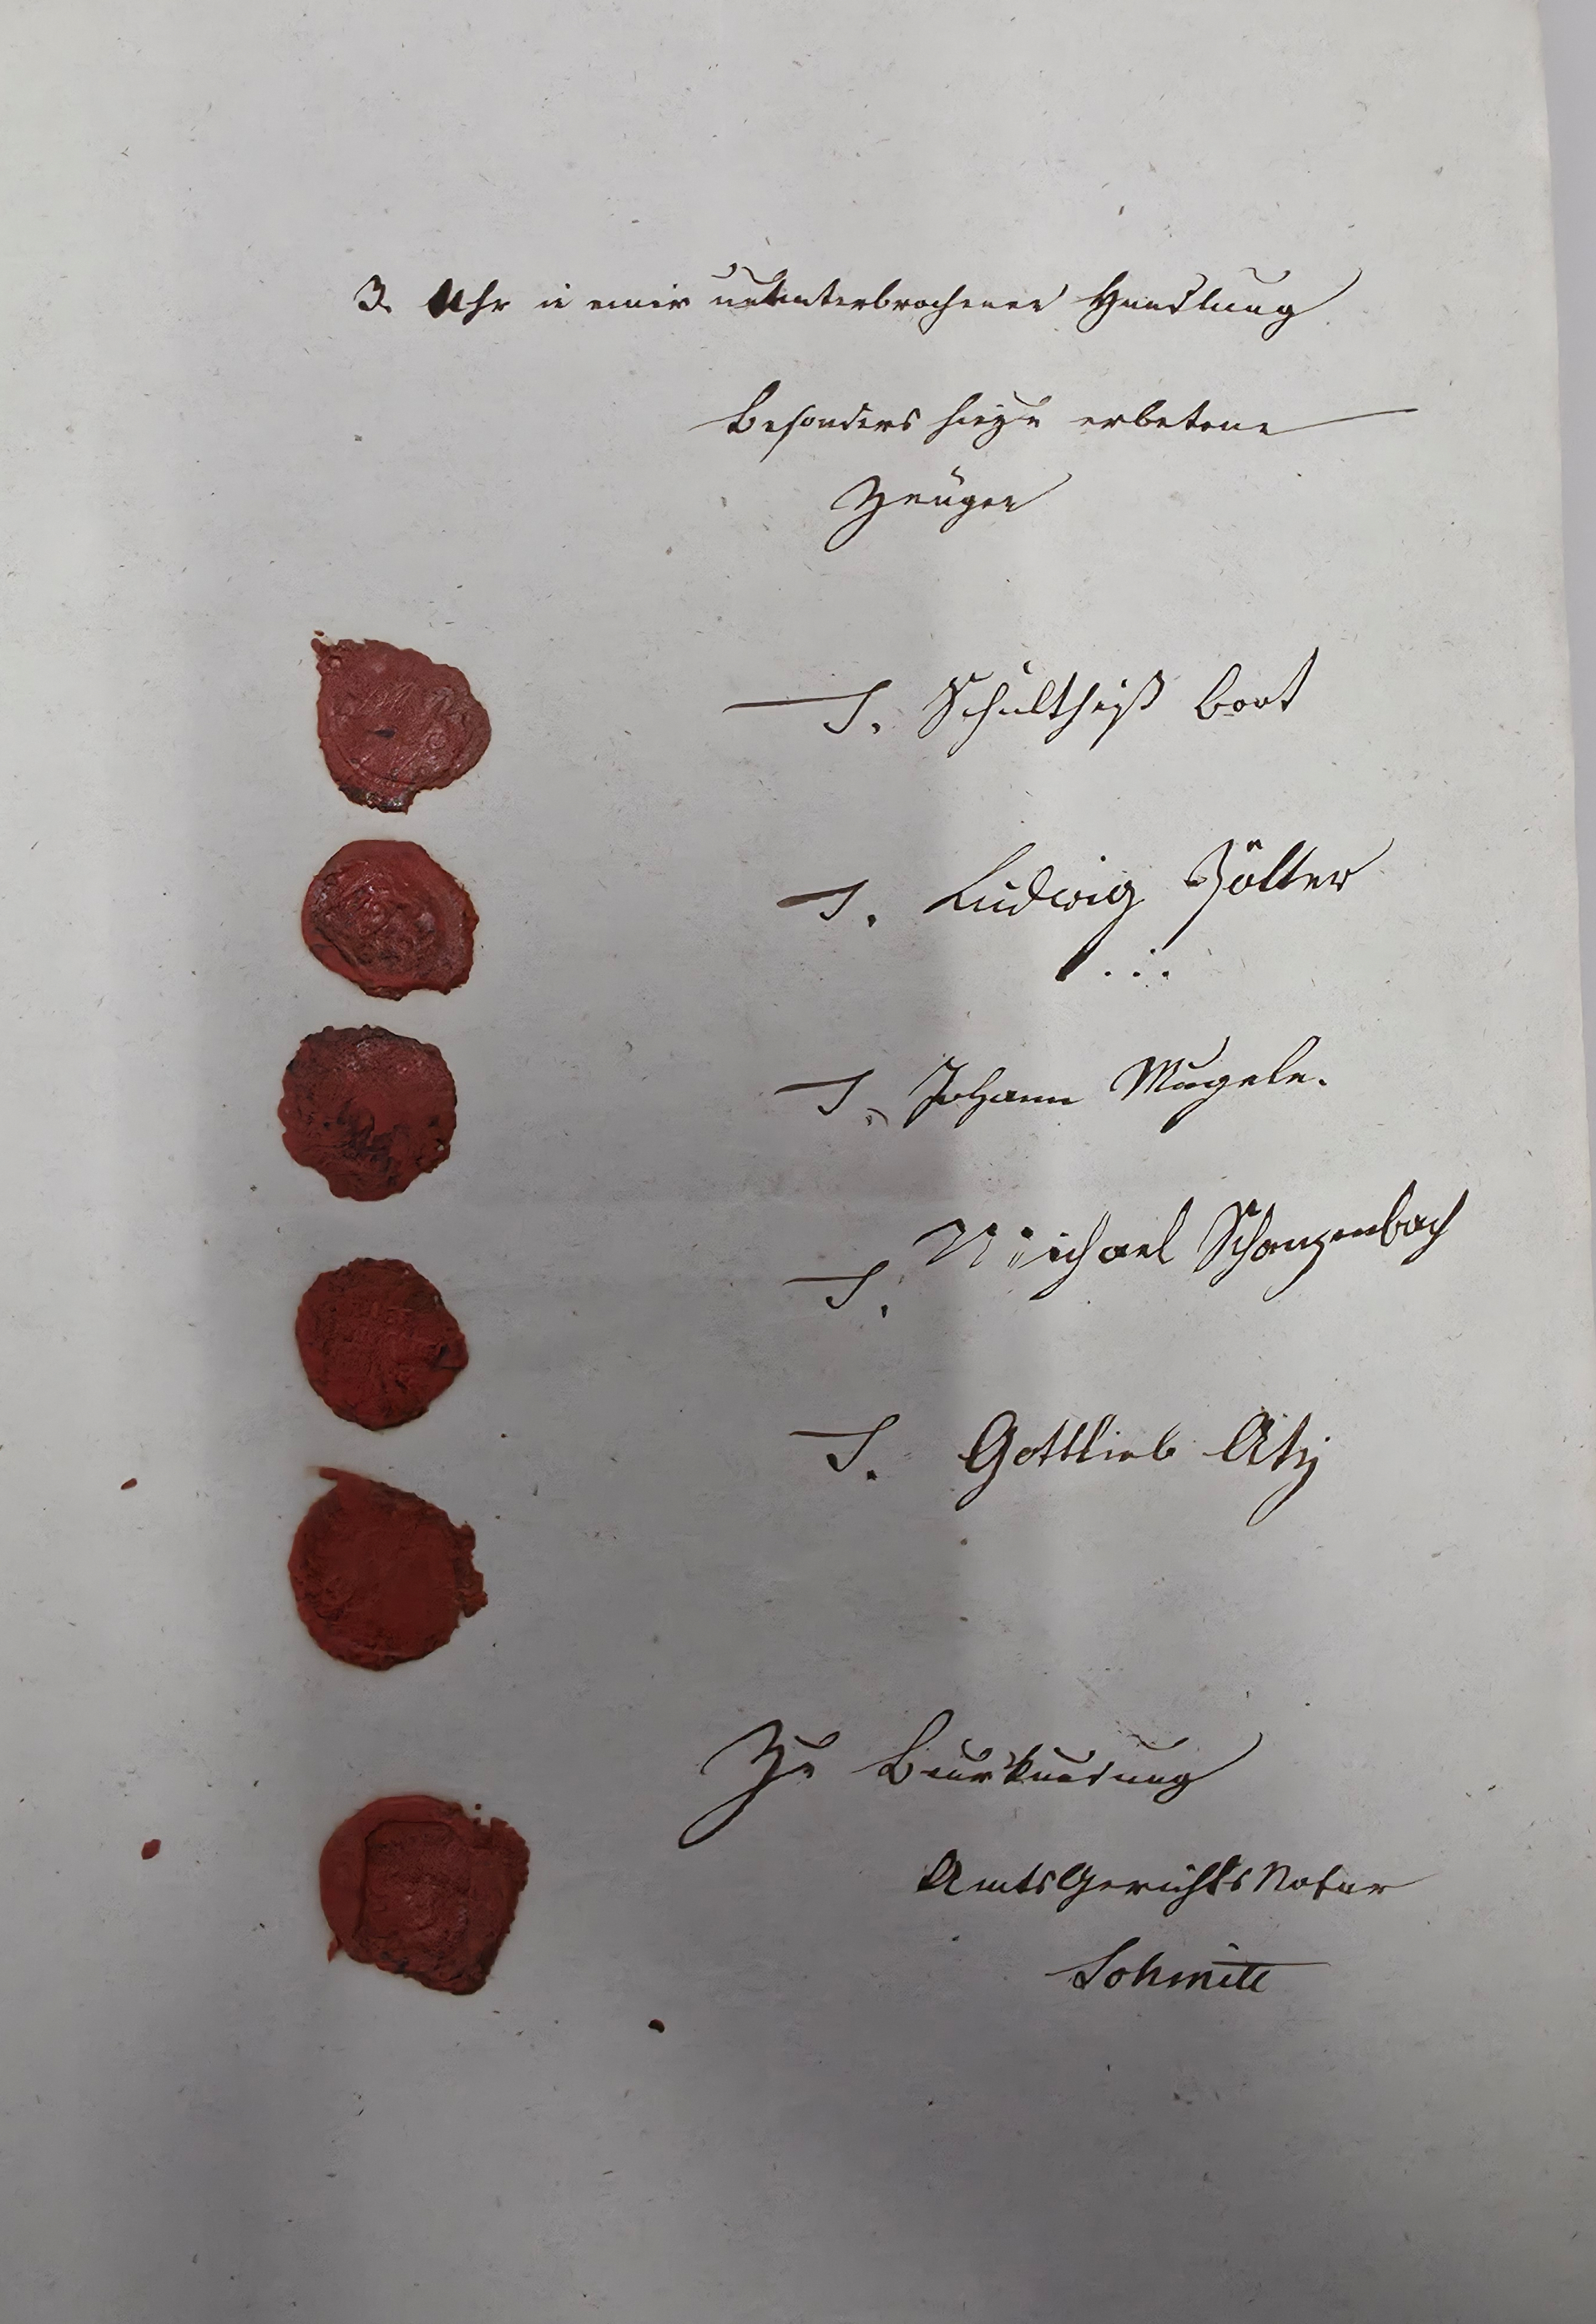 3. Uhr in einer ununterbrochenen Handlung
Besonders hiezu erbetene
Zeugen
T. Schultheiß
T. Ludwig
T. Johann Mugele.
Michael Schanzenbach
T.
T. Gottlieb
Zu Beurkundung
AmtsGerichtsNotar